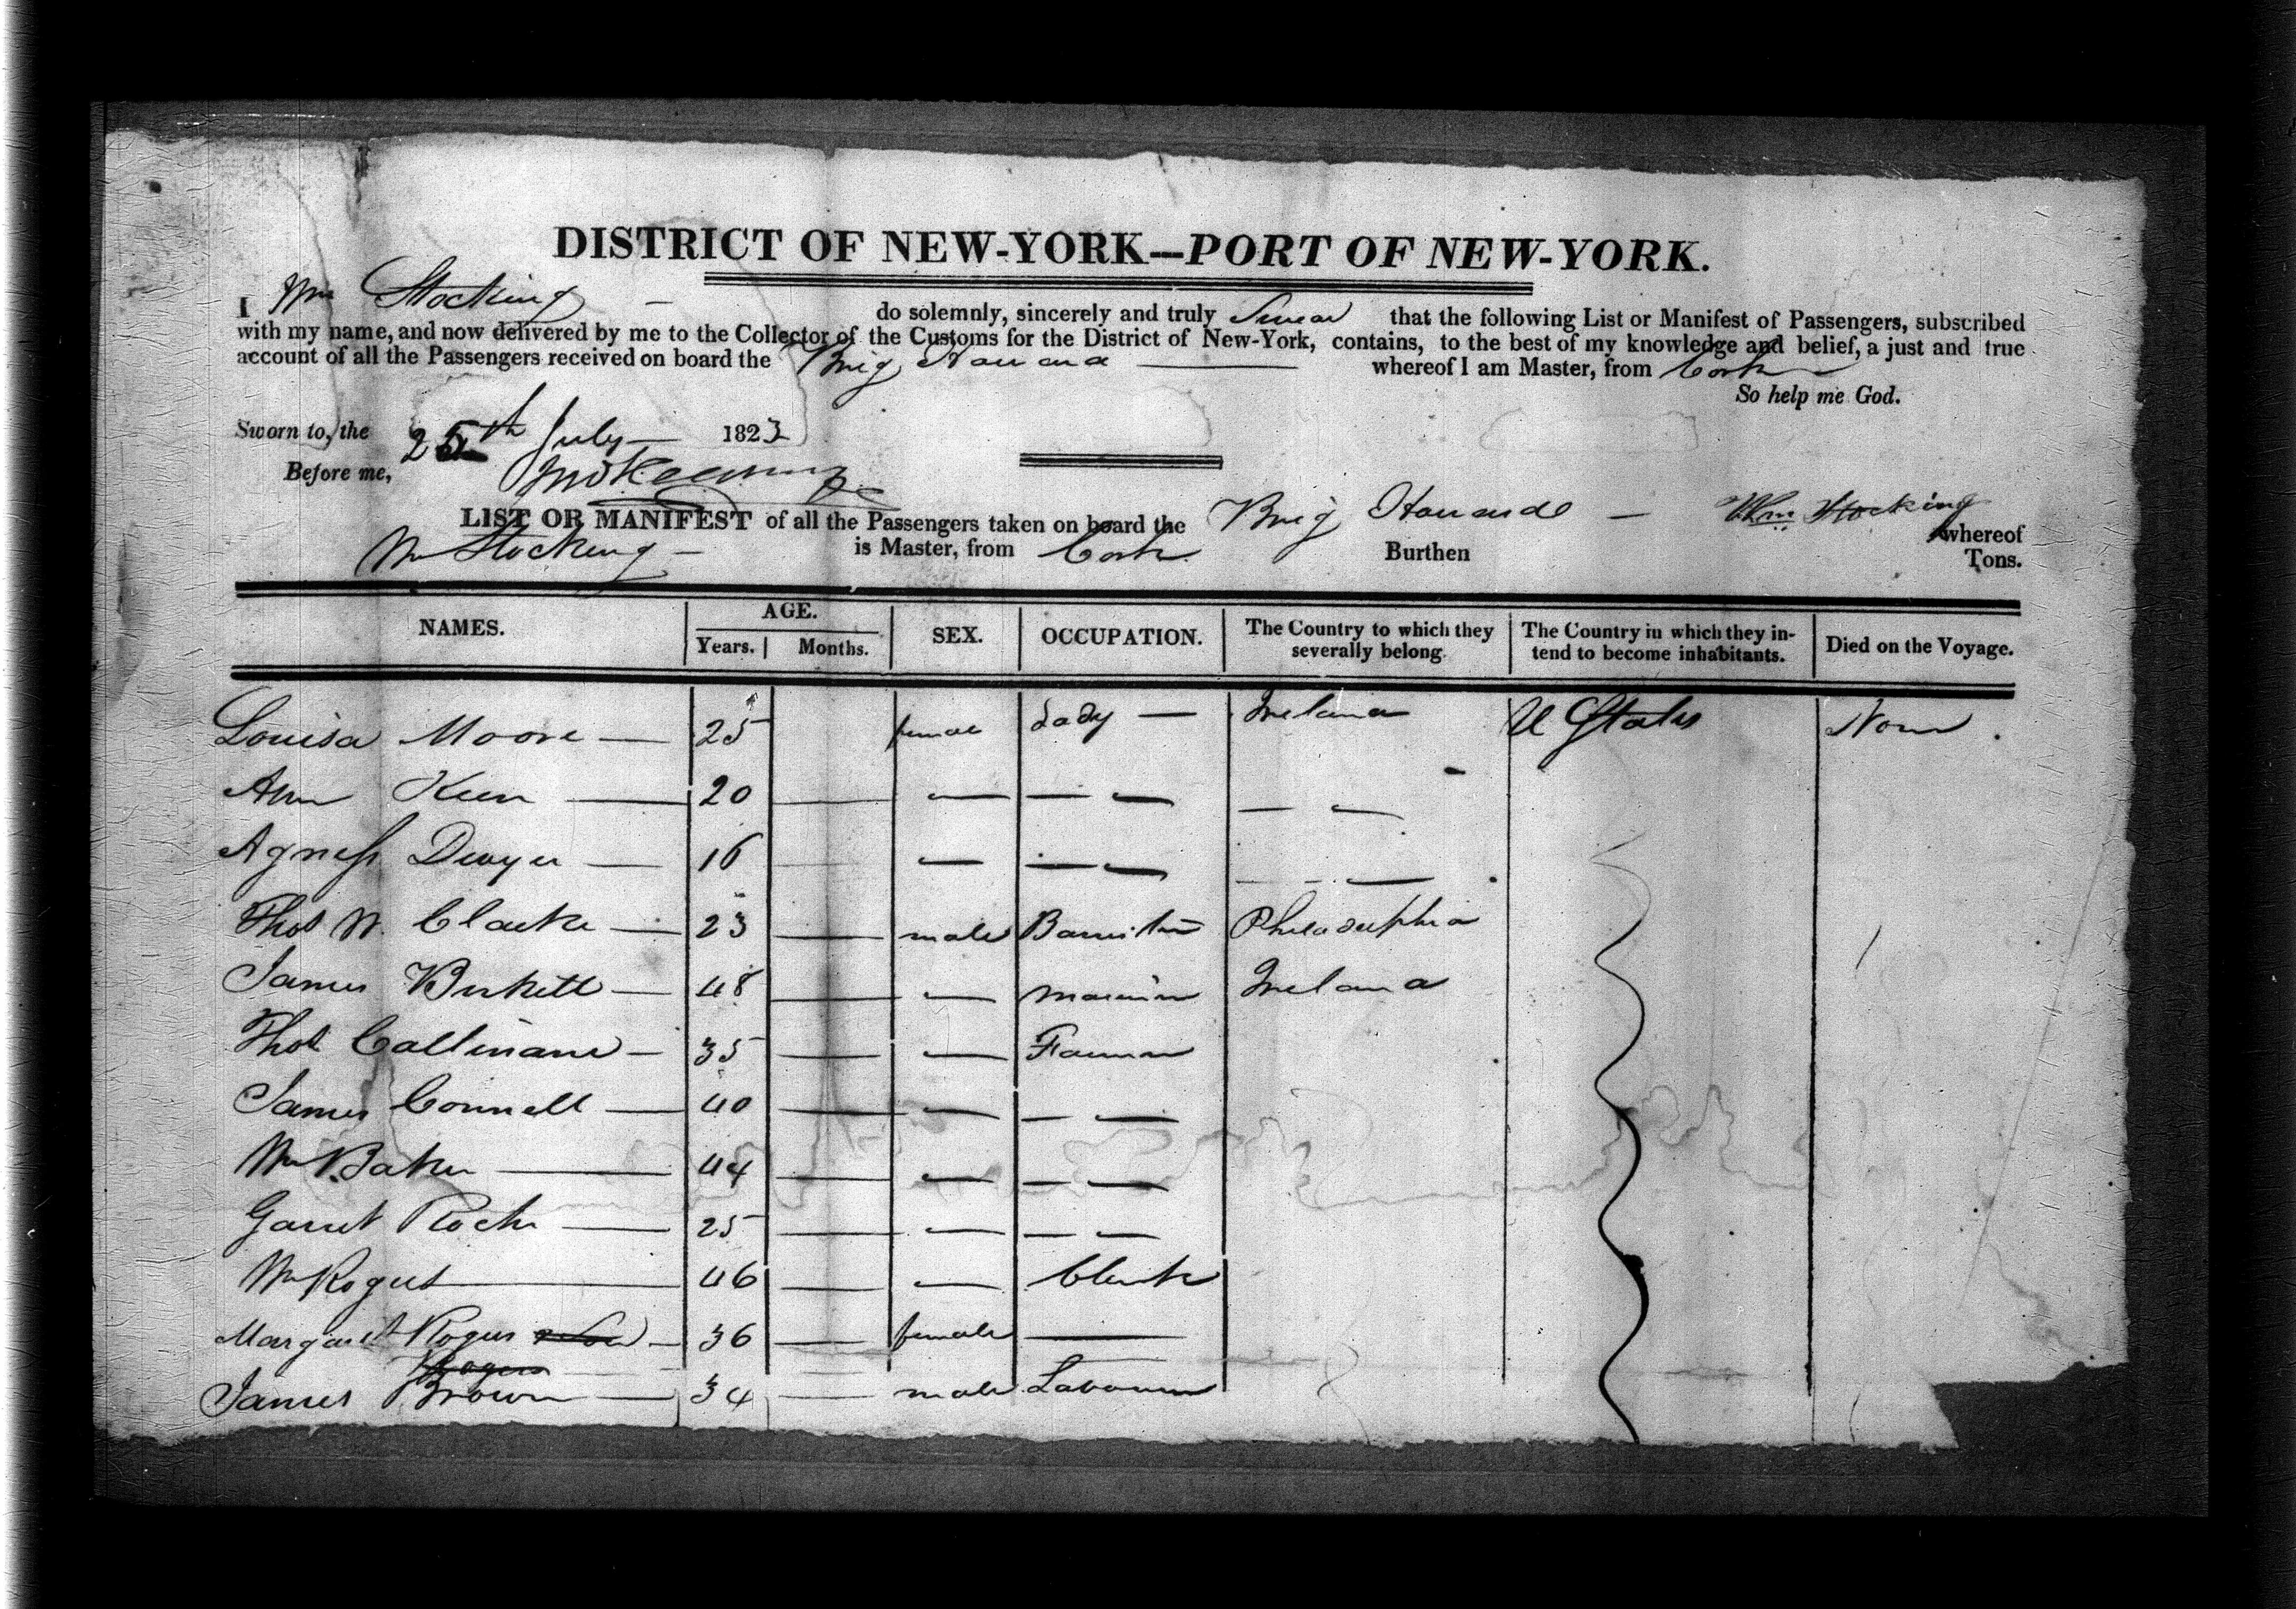 DISTRICT OF NEW-YORK—PORT OF NEW-YORK.
I Wm Stocking — do solemnly, sincerely and truly Swear that the following List or Manifest of Passengers, subscribed
with my name, and now delivered by me to the Collector of the Customs for the District of New-York, contains, to the best of my knowledge and belief, a just and true
account of all the Passengers received on board the Brig Howard — whereof I am Master, from Cork
So help me God.
Sworn to, the 25th July — 1823
Before me,
LIST OR MANIFEST of all the Passengers taken on board the Brig Howard — Wm Stocking whereof
Wm Stocking — is Master, from Cork Burthen Tons.
NAMES. AGE. SEX. OCCUPATION. The Country to which they severally belong. The Country in which they intend to become inhabitants. Died on the Voyage.
Years. Months.
Louisa Moore — 25 female Lady — Ireland U States None
Ann Keen — 20 — — — — — —
Agness Dwyer — 16 — — — — — —
Thos W. Clarke — 23 — male Barrister Philadelphia
James Birkett — 48 — — mariner Ireland
Thos Callinane — 35 — — Farmer
James Connell — 40 — — — —
Wm Baker — 44 — — — —
Garret Roche — 25 — — — —
Wm Rogers — 46 — — Clerk
Margaret Rogers — 36 — female —
Rogers
James Brown — 34 — male Labourer